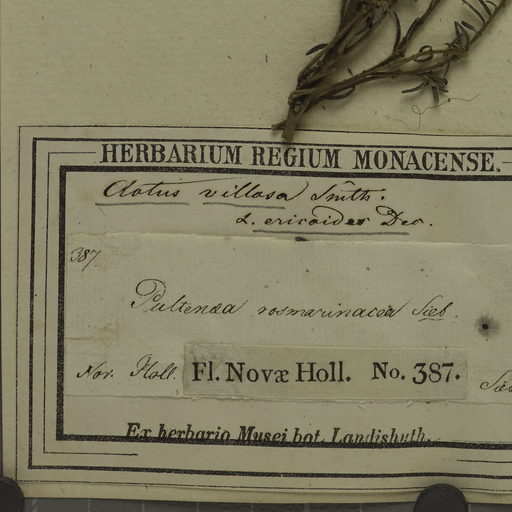 HERBARIUM REGIUM MONACENSE.
Aotus villosa Smth.
α. ericoides Dec.
387.
Pultenæa rosmarinacea Sieb.
Nov. Holl. Fl. Novæ Holl. No. 387.
Ex herbario Musei bot. Landishuth.